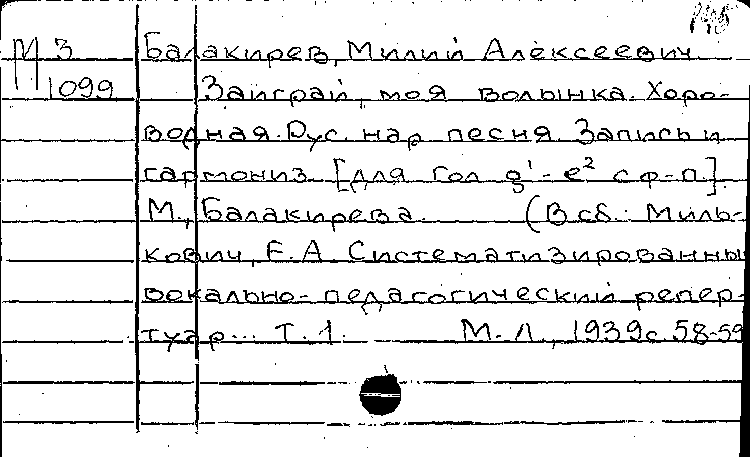 М 3 Балакирев, Милий Алексеевич
1099 Заиграй, моя волынка. Хоро-
водная. Рус. нар песня. Запись и
гармониз. [Для гол g¹-e² с ф-п.].
М., Балакирева. (В сб.: Миль-
кович, Е.А. Систематизированный
вокально-педагогический репер-
туар... Т.1. М.-Л., 1939 с. 58-59